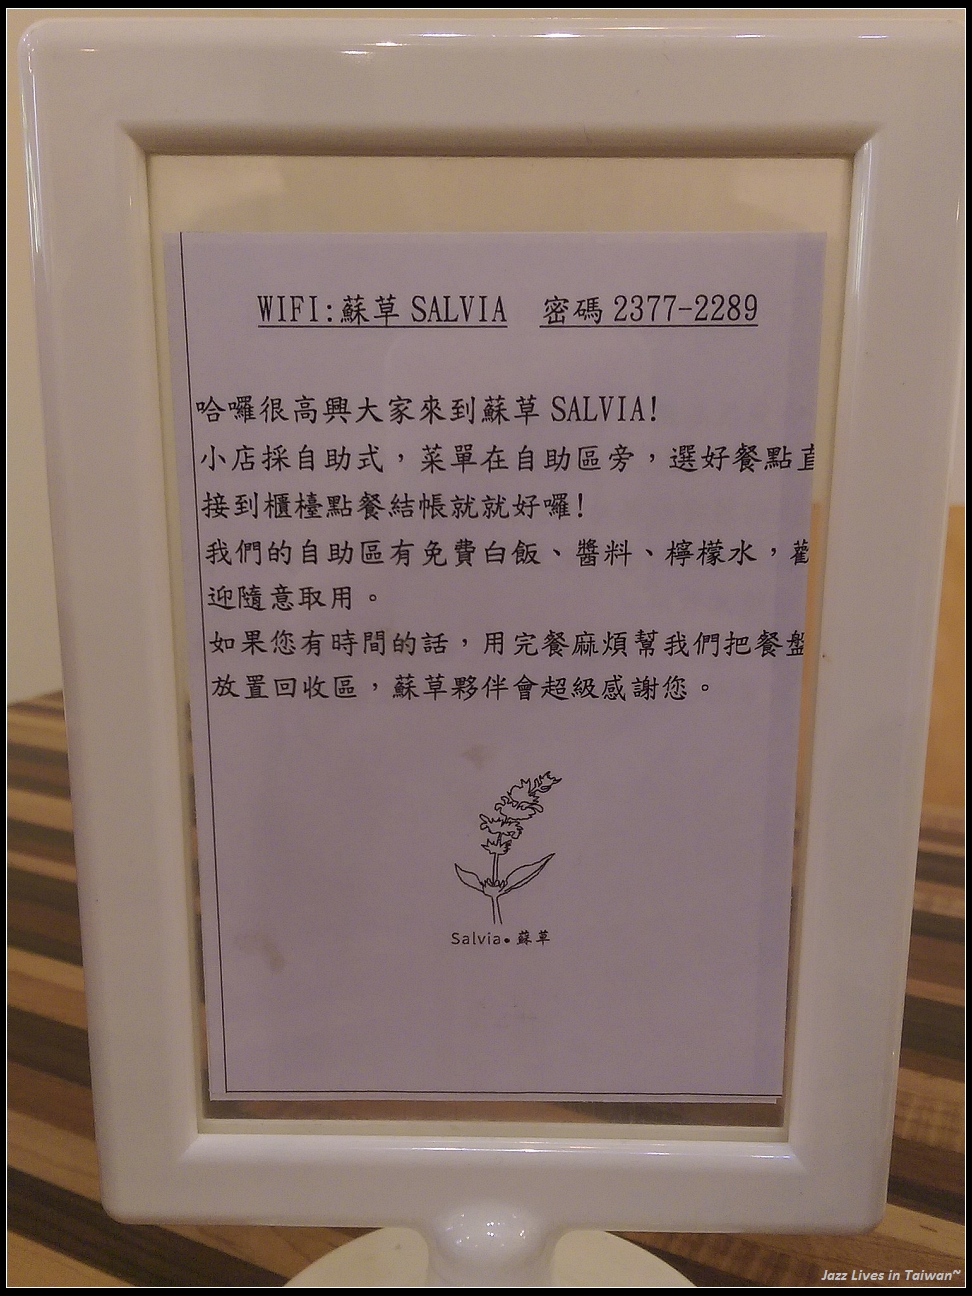 WIFI:蘇草 SALVIA 密碼 2377-2289
哈囉很高興大家來到蘇草 SALVIA!
小店採自助式，菜單在自助區旁，選好餐點直
接到櫃檯點餐結帳就就好囉!
我們的自助區有免費白飯、醬料、檸檬水，歡
迎隨意取用。
如果您有時間的話，用完餐麻煩幫我們把餐盤
放置回收區，蘇草夥伴會超級感謝您。
Salvia•蘇草
Jazz Lives in Taiwan~